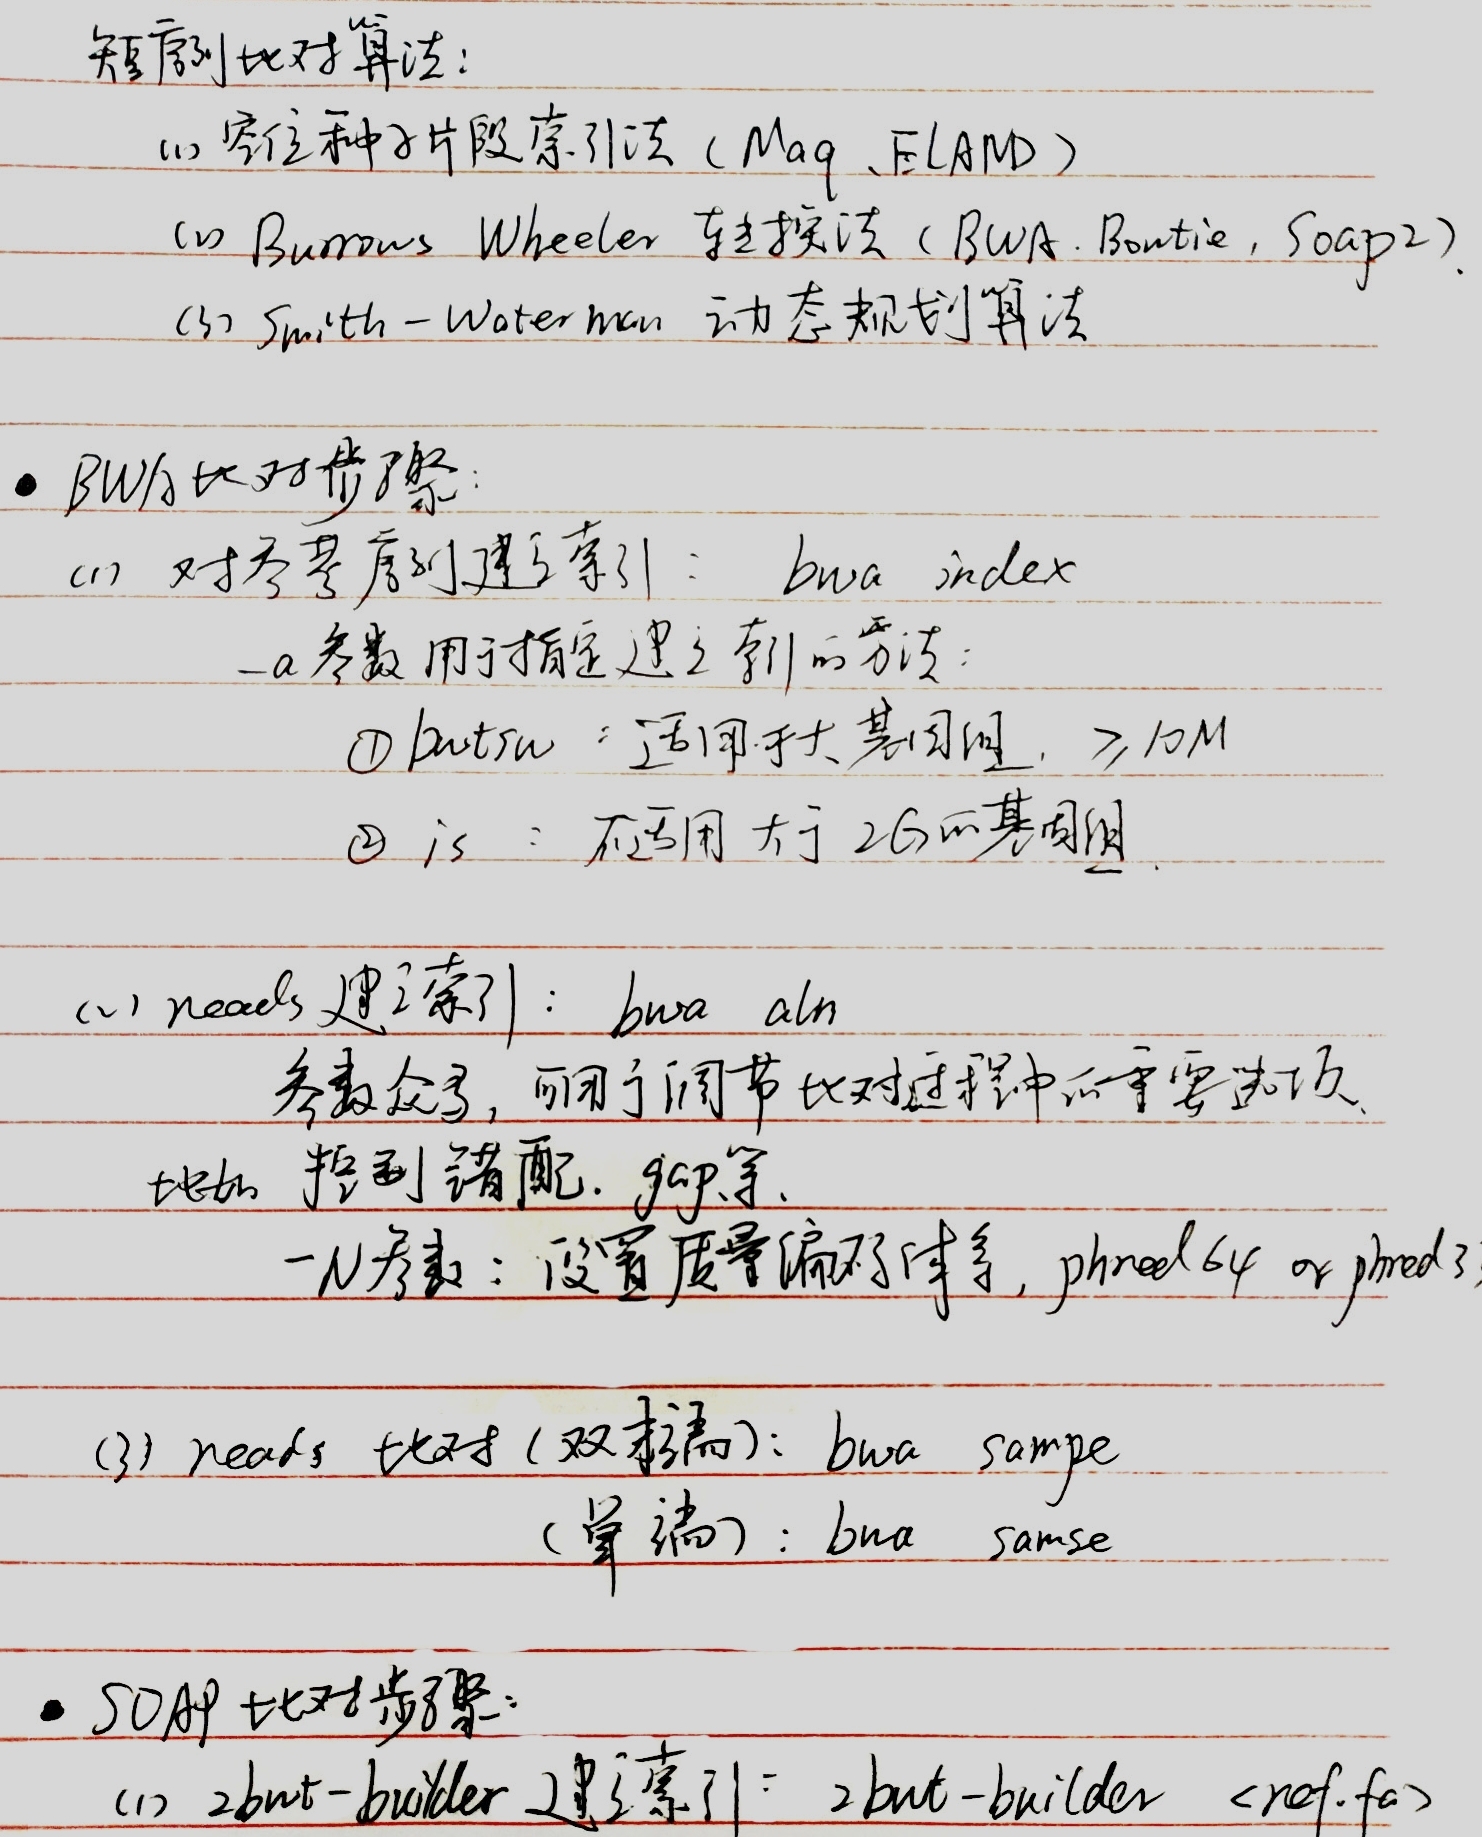 短序列比对算法:
(1) 空位种子片段索引法 (Maq、ELAND)
(2) Burrows Wheeler 转换法 (BWA. Bowtie, Soap2).
(3) Smith-Waterman 动态规划算法
• BWA比对步骤:
(1) 对参考序列建立索引: bwa index
-a参数用于指定建立索引的方法:
① bwtsw : 适用于大基因组, ≥10M
② is : 不适用大于2G的基因组.
(2) reads建立索引: bwa aln
参数众多, 可用于调节比对过程中的重要选项、
比如 控制错配. gap等、
-N参数: 设置质量编码体系, phred64 or phred33
(3) reads 比对 (双末端): bwa sampe
(单端): bwa samse
• SOAP比对步骤:
(1) 2bwt-builder 建立索引: 2bwt-builder <ref.fa>